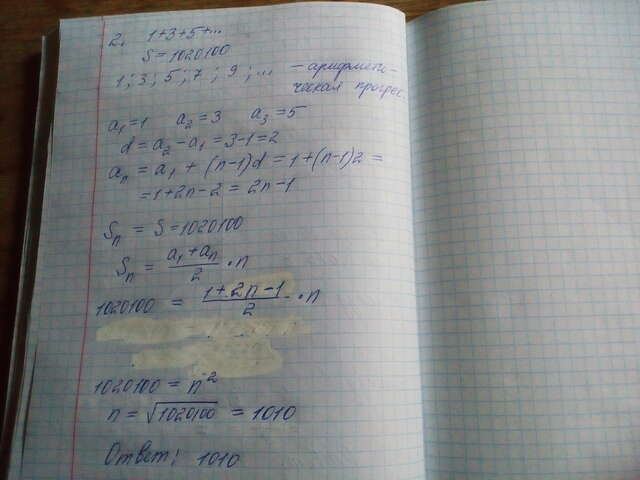 2. 1+3+5+...
S = 1020100
1; 3; 5; 7; 9; ... – арифмети-
ческая прогрес.
a₁=1 a₂=3 a₃=5
d = a₂ - a₁ = 3-1=2
aₙ = a₁ + (n-1)d = 1+(n-1)2 =
= 1+2n-2 = 2n-1
Sₙ = S = 1020100
Sₙ = (a₁+aₙ)/2 · n
1020100 = (1+2n-1)/2 · n
1020100 = n²
n = √1020100 = 1010
Ответ: 1010